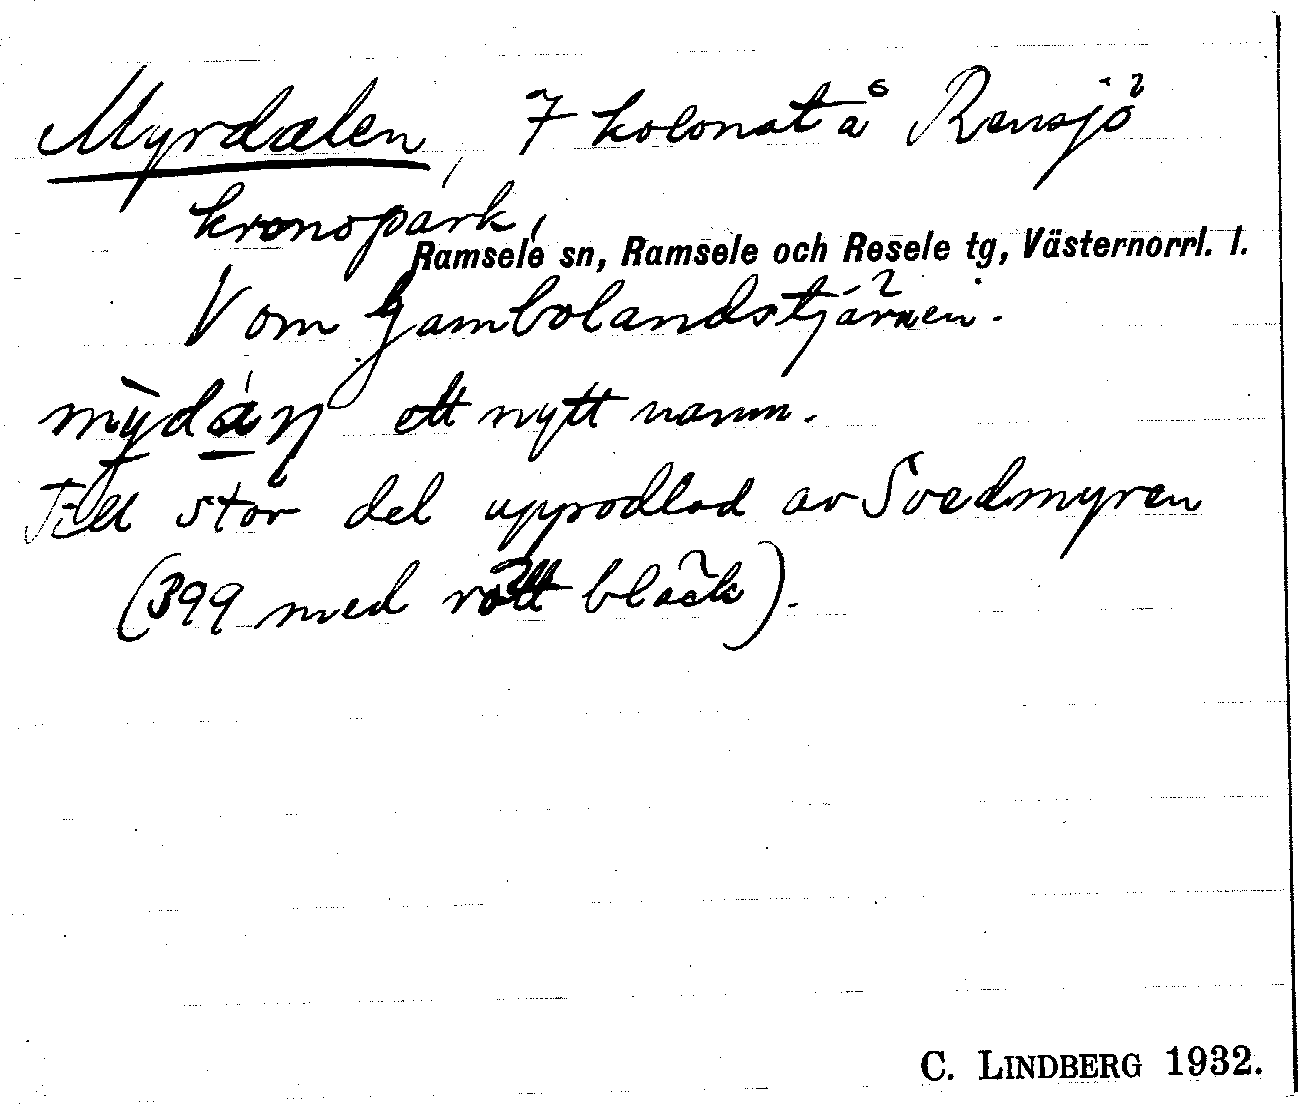 Myrdalen, 7 kolonat å Rensjö
kronopark,
Ramsele sn, Ramsele och Resele tg, Västernorrl. l.
V om Gambolandstjärnen.
ett nytt namn.
stor del uppodlad av Svedmyren
(399 med rött bläck).
C. LINDBERG 1932.